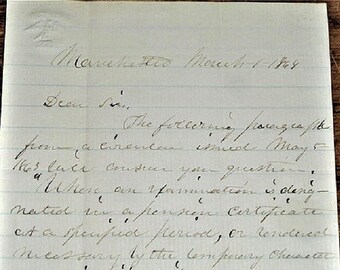 Manchester March 1 1869
Dear Sir.
The following paragraph
from a circular issued May 5
1863 will answer your question.
"When an examination is desig-
nated in a pension certificate
at a specified period, or rendered
necessary by the temporary character